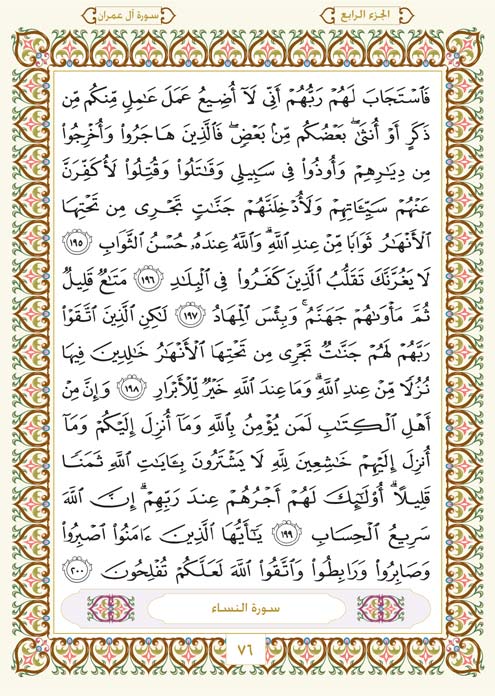 الجزء الرابع
سورة آل عمران
فَٱسْتَجَابَ لَهُمْ رَبُّهُمْ أَنِّي لَآ أُضِيعُ عَمَلَ عَٰمِلٍ مِّنكُم مِّن
ذَكَرٍ أَوْ أُنثَىٰۖ بَعْضُكُم مِّنۢ بَعْضٍۖ فَٱلَّذِينَ هَاجَرُوا۟ وَأُخْرِجُوا۟
مِن دِيَٰرِهِمْ وَأُوذُوا۟ فِي سَبِيلِي وَقَٰتَلُوا۟ وَقُتِلُوا۟ لَأُكَفِّرَنَّ
عَنْهُمْ سَيِّـَٔاتِهِمْ وَلَأُدْخِلَنَّهُمْ جَنَّٰتٍ تَجْرِي مِن تَحْتِهَا
ٱلْأَنْهَٰرُ ثَوَابًا مِّنْ عِندِ ٱللَّهِۗ وَٱللَّهُ عِندَهُۥ حُسْنُ ٱلثَّوَابِ ١٩٥
لَا يَغُرَّنَّكَ تَقَلُّبُ ٱلَّذِينَ كَفَرُوا۟ فِي ٱلْبِلَٰدِ ١٩٦ مَتَٰعٌ قَلِيلٌ
ثُمَّ مَأْوَىٰهُمْ جَهَنَّمُۚ وَبِئْسَ ٱلْمِهَادُ ١٩٧ لَٰكِنِ ٱلَّذِينَ ٱتَّقَوْا۟
رَبَّهُمْ لَهُمْ جَنَّٰتٌ تَجْرِي مِن تَحْتِهَا ٱلْأَنْهَٰرُ خَٰلِدِينَ فِيهَا
نُزُلًا مِّنْ عِندِ ٱللَّهِۗ وَمَا عِندَ ٱللَّهِ خَيْرٌ لِّلْأَبْرَارِ ١٩٨ وَإِنَّ مِنْ
أَهْلِ ٱلْكِتَٰبِ لَمَن يُؤْمِنُ بِٱللَّهِ وَمَآ أُنزِلَ إِلَيْكُمْ وَمَآ
أُنزِلَ إِلَيْهِمْ خَٰشِعِينَ لِلَّهِ لَا يَشْتَرُونَ بِـَٔايَٰتِ ٱللَّهِ ثَمَنًا
قَلِيلًاۗ أُو۟لَٰٓئِكَ لَهُمْ أَجْرُهُمْ عِندَ رَبِّهِمْۗ إِنَّ ٱللَّهَ
سَرِيعُ ٱلْحِسَابِ ١٩٩ يَٰٓأَيُّهَا ٱلَّذِينَ ءَامَنُوا۟ ٱصْبِرُوا۟
وَصَابِرُوا۟ وَرَابِطُوا۟ وَٱتَّقُوا۟ ٱللَّهَ لَعَلَّكُمْ تُفْلِحُونَ ٢٠٠
سورة النساء
٧٦